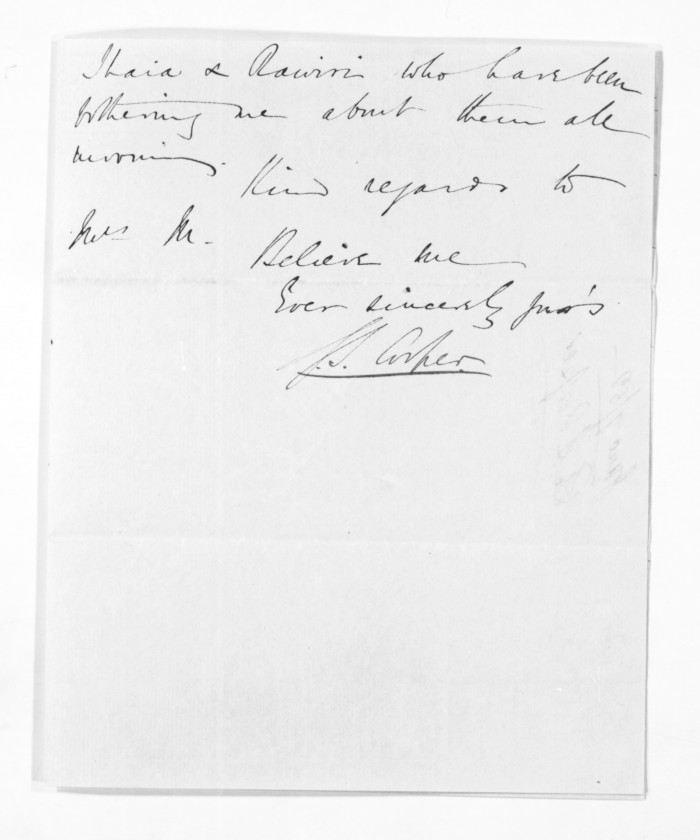 Ihaia & Rawiri who have been
bothering me about them all
morning.
Kind regards to
Mrs M.
Believe me
Ever sincerely yours
G.S. Cooper.